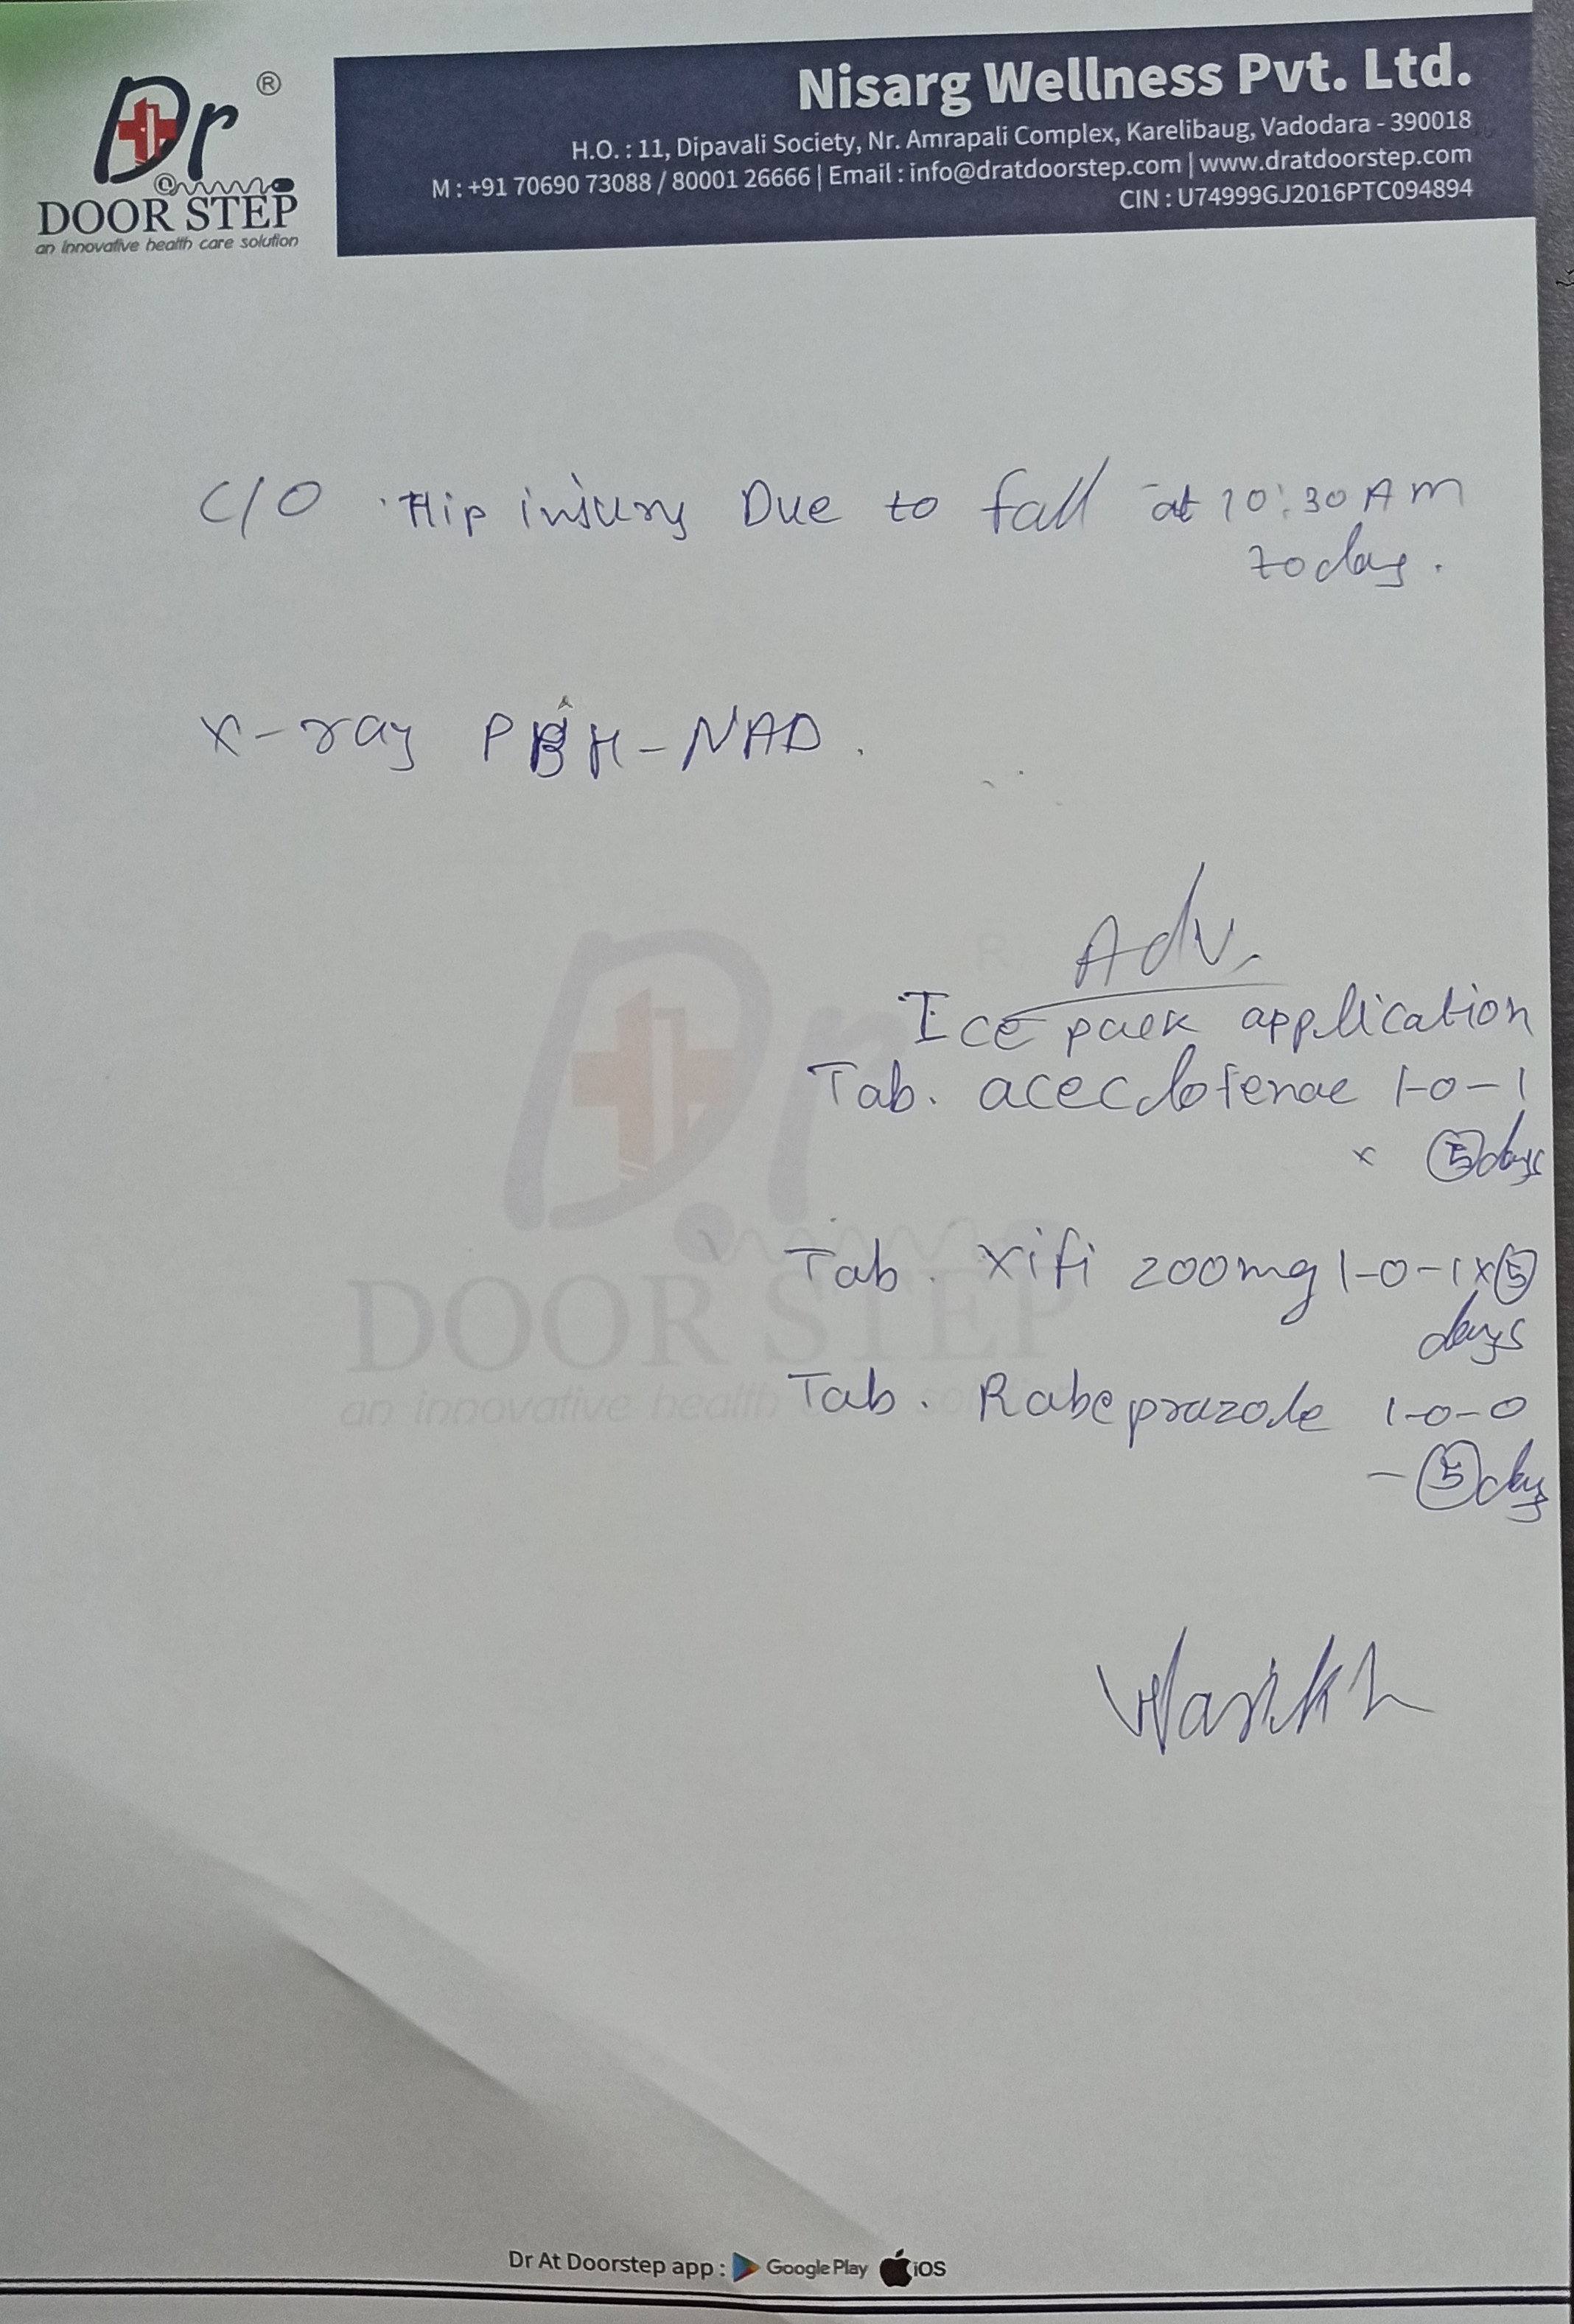 Dr ®
@
DOOR STEP
an innovative health care solution
Nisarg Wellness Pvt. Ltd.
H.O. : 11, Dipavali Society, Nr. Amrapali Complex, Karelibaug, Vadodara - 390018
M : +91 70690 73088 / 80001 26666 | Email : info@dratdoorstep.com | www.dratdoorstep.com
CIN : U74999GJ2016PTC094894
C/O Hip injury Due to fall at 10:30 AM
today.
X-ray PBH - NAD.
Adv.
Ice pack application
Tab. aceclofenac 1-0-1
x 5 days
Tab. Xifi 200mg 1-0-1 x 5
days
Tab. Rabeprazole 1-0-0
- 5 days
Dr
DOOR STEP
an innovative health
Dr At Doorstep app : Google Play iOS